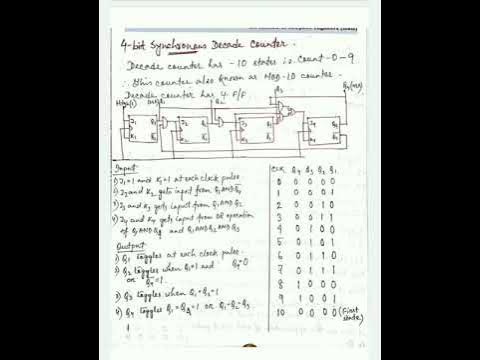 4-bit Synchronous Decade Counter.
Decade counter has - 10 states i.e. Count - 0 - 9
∴ This counter also known as MOD-10 counter.
Decade counter has 4 F/F
Q2
Q3
J1 Q1
K1 Q̅1
J2 Q2
K2 Q̅2
J3 Q3
K3 Q̅3
J4 Q4
K4 Q̅4
Input
1) J1 = 1 and K1 = 1 at each clock pulse
2) J2 and K2 gets input from Q1 AND Q̅4
3) J3 and K3 gets input from Q1 AND Q2
4) J4 and K4 gets input from OR operation
of Q1 AND Q4 and Q1 AND Q2 AND Q3
Output
1) Q1 toggles at each clock pulse.
2) Q2 toggles when Q1 = 1 and Q4 = 0
or Q̅4 = 1.
3) Q3 toggles when Q1 = Q2 = 1
4) Q4 toggles Q1 = Q4 = 1 or Q1 = Q2 = Q3
CLK Q4 Q3 Q2 Q1
0 0 0 0 0
1 0 0 0 1
2 0 0 1 0
3 0 0 1 1
4 0 1 0 0
5 0 1 0 1
6 0 1 1 0
7 0 1 1 1
8 1 0 0 0
9 1 0 0 1
10 0 0 0 0 (First
state)